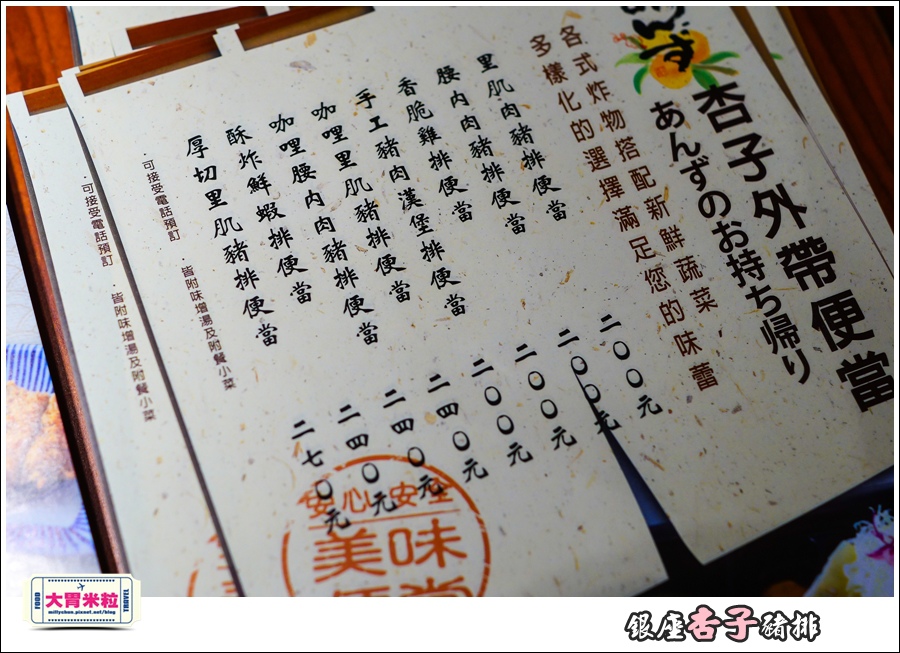 んず
杏子外帶便當
あんずのお持ち帰り
各式炸物搭配新鮮蔬菜，
多樣化的選擇滿足您的味蕾
里肌肉豬排便當 二〇〇元
腰內肉豬排便當 二〇〇元
香脆雞排便當 二〇〇元
手工豬肉漢堡排便當 二〇〇元
咖哩里肌豬排便當 二四〇元
咖哩腰內肉豬排便當 二四〇元
酥炸鮮蝦排便當 二四〇元
厚切里肌豬排便當 二七〇元
．可接受電話預訂 ．皆附味增湯及附餐小菜
．可接受電話預訂 ．皆附味增湯及附餐小菜
安心安全
美味
FOOD
大胃米粒
millychun.pixnet.net/blog
TRAVEL
銀座杏子豬排